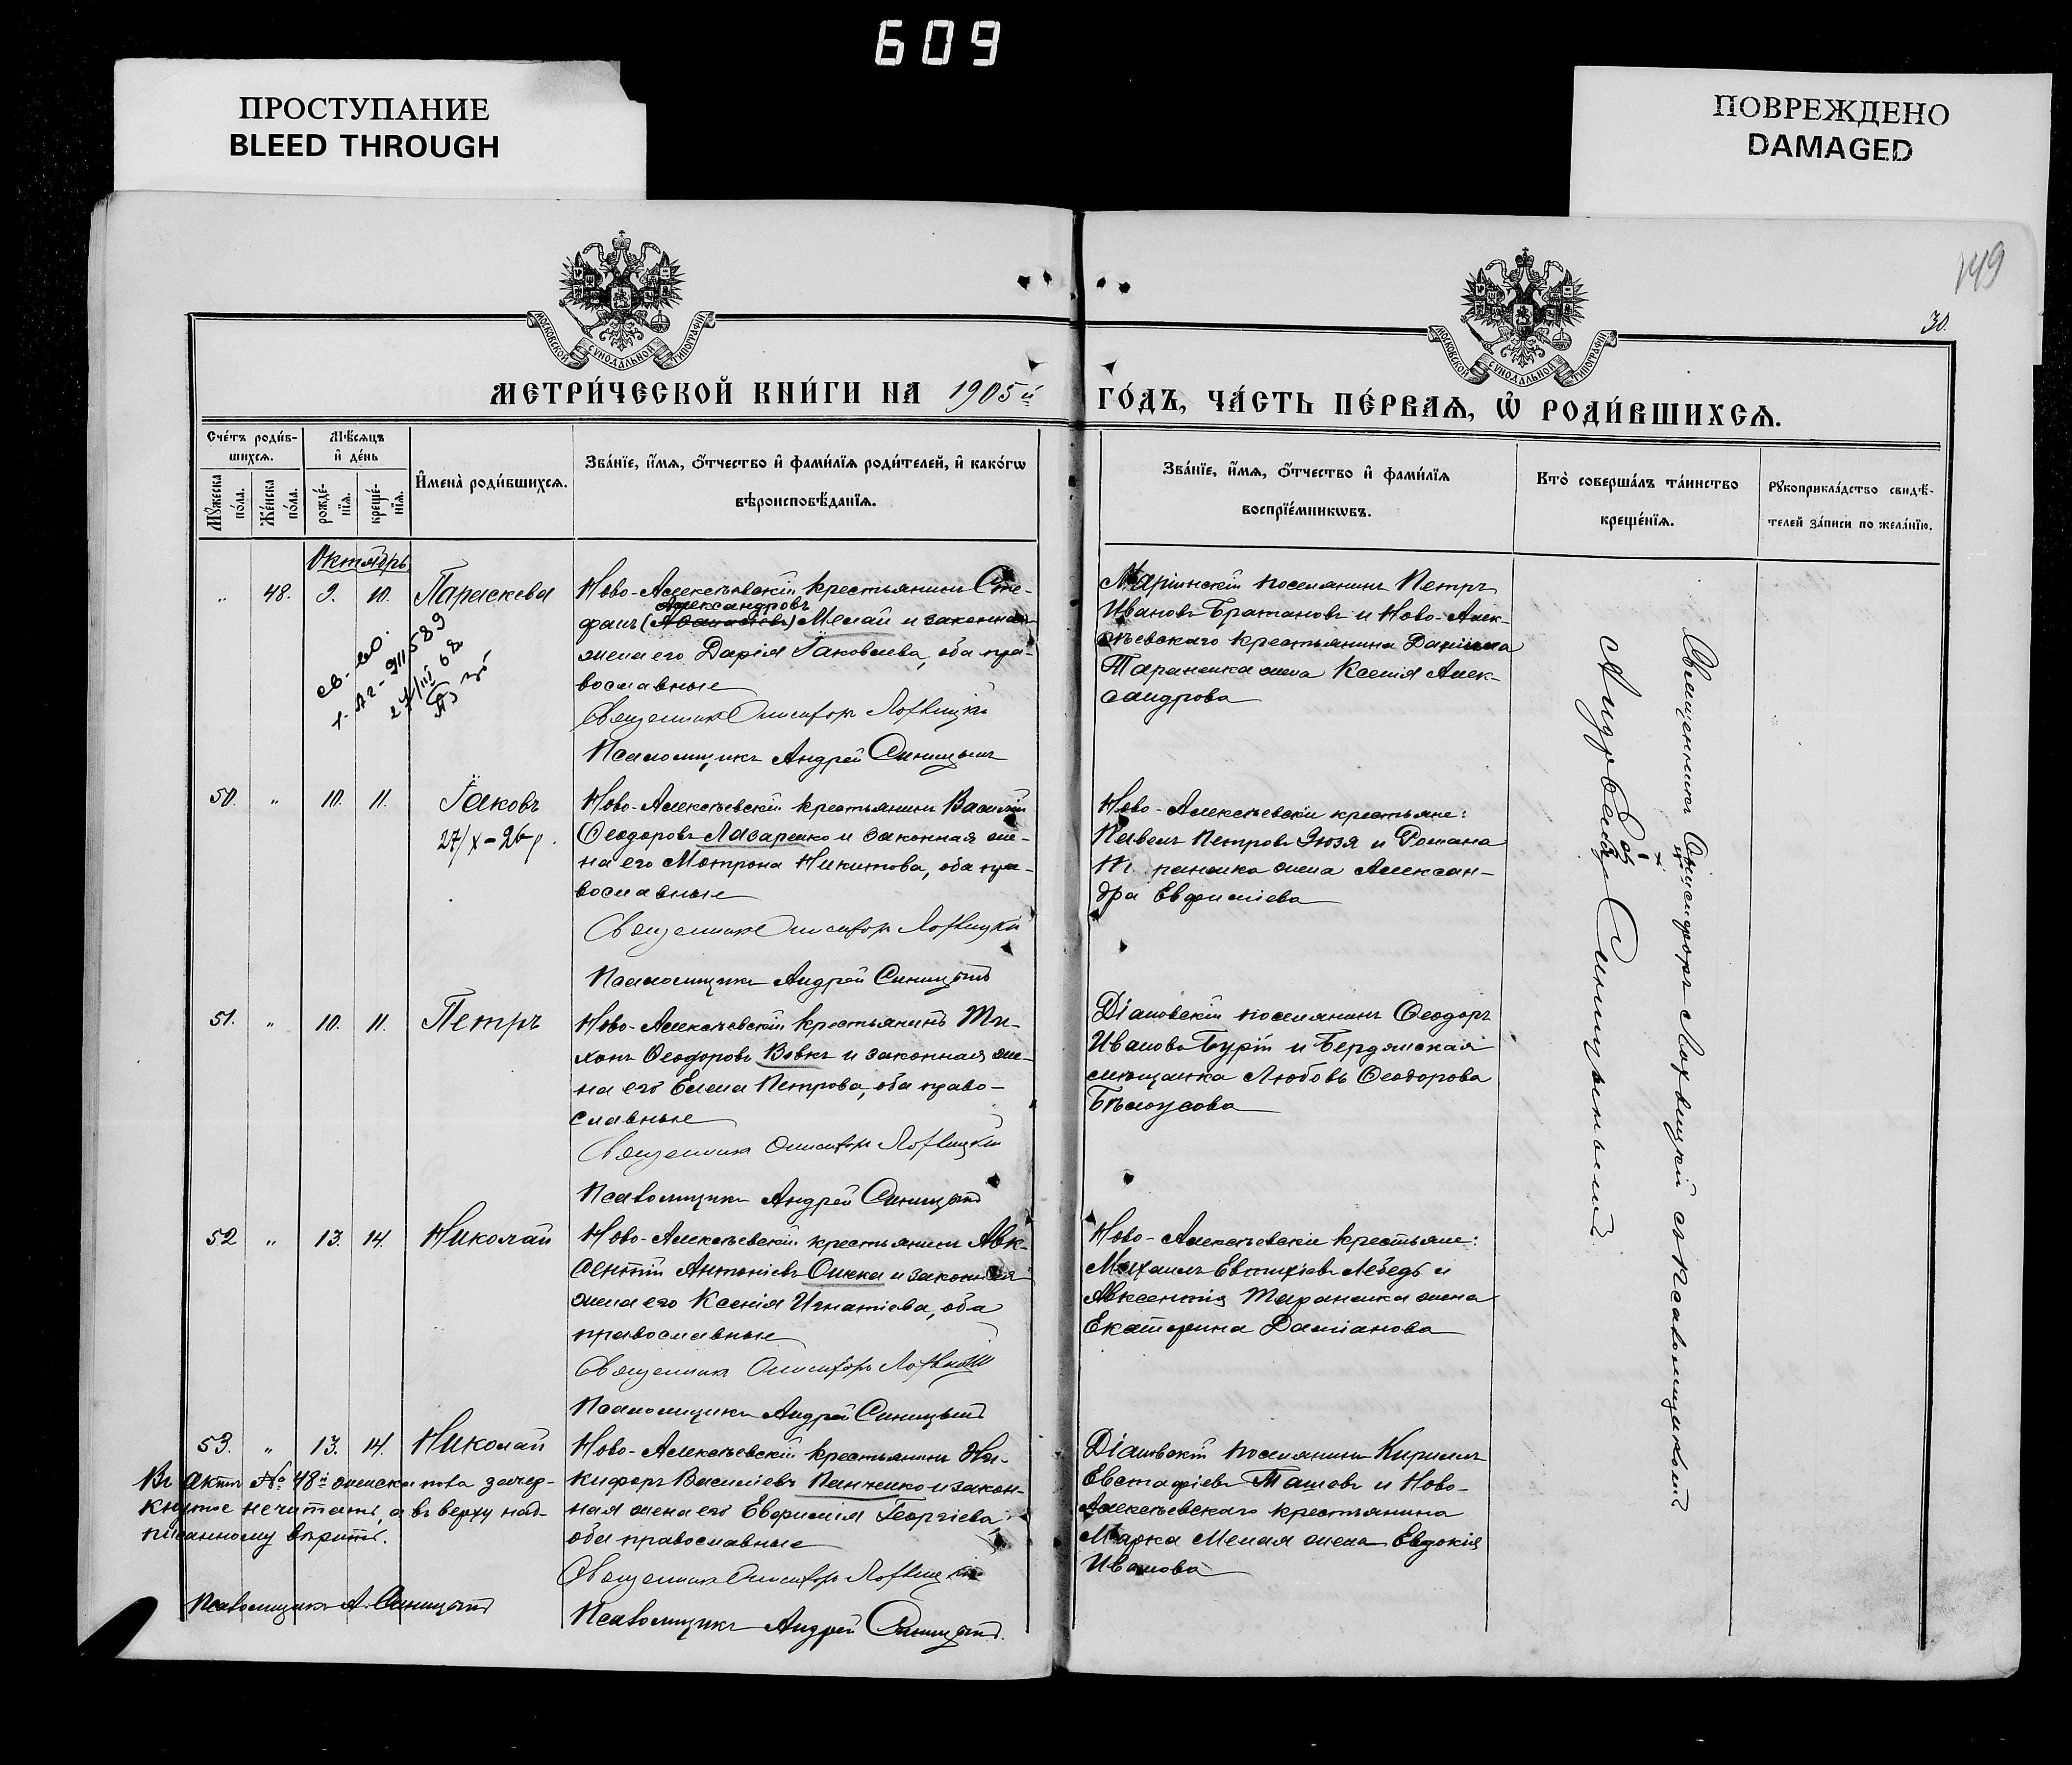 609
ПРОСТУПАНИЕ
BLEED THROUGH
ПОВРЕЖДЕНО
DAMAGED
149
30.
МОСКОВСКОЙ СѴНОДАЛЬНОЙ ТИПОГРАФІИ
МОСКОВСКОЙ СѴНОДАЛЬНОЙ ТИПОГРАФІИ
МЕТРИ́ЧЕСКОЙ КНИ́ГИ НА 1905й ГО́ДЪ, ЧА́СТЬ ПЕ́РВАѦ, Ѡ҆ РОДИ́ВШИХСѦ.
Сче́тъ роди́в-
шихсѧ.
Мꙋ́жеска по́ла.
Же́нска по́ла.
Мѣ́сѧцъ
и҆ де́нь
рожде́-
нїѧ.
креще́-
нїѧ.
И҆мена̀ роди́вшихсѧ.
Зва́нїе, и҆́мѧ, ѻ҆́тчество и҆ фами́лїѧ роди́телей, и҆ како́гѡ
вѣроисповѣ́данїѧ.
Зва́нїе, и҆́мѧ, ѻ҆́тчество и҆ фами́лїѧ
воспрїе́мникѡвъ.
Кто̀ соверша́лъ та́инство
креще́нїѧ.
Рꙋкоприкла́дство свидѣ́-
телей за́писи по жела́нїю.
Октябрь
„ 48. 9. 10. Параскева
Ново-Алексѣевскій крестьянинъ Сте-
Александровъ
фанъ (Аѳанасіевъ) Мелай и законная
жена его Дарія Іаковлева, оба пра-
вославные
Священникъ Онисифоръ Лохвицкій
Псаломщикъ Андрей Синицынъ
Маріинскій поселянинъ Петръ
Ивановъ Братановъ и Ново-Алек-
сѣевскаго крестьянина Даніила
Тараненка жена Ксенія Алек-
сандрова
св-во.
911589
27/III 68
50. „ 10. 11. Іаковъ
27/X-26
Ново-Алексѣевскій крестьянинъ Василій
Ѳеодоровъ Лазаренко и законная же-
на его Мотрона Никитова, оба пра-
вославные
Священникъ Онисифоръ Лохвицкій
Псаломщикъ Андрей Синицынъ
Ново-Алексѣевскіе крестьяне:
Павелъ Петровъ Зюзя и Романа
Тараненка жена Алексан-
дра Евфиміева
51. „ 10. 11. Петръ
Ново-Алексѣевскій крестьянинъ Ти-
хонъ Ѳеодоровъ Вовкъ и законная же-
на его Елена Петрова, оба право-
славные
Священникъ Онисифоръ Лохвицкій
Псаломщикъ Андрей Синицынъ
Діановскій поселянинъ Ѳеодоръ
Ивановъ Бурій и Бердянская
мѣщанка Любовь Ѳеодорова
Бѣлоусова
52 „ 13. 14. Николай
Ново-Алексѣевскій крестьянинъ Авк-
сентій Антоніевъ Сикка и законная
жена его Ксенія Игнатіева, оба
православные
Священникъ Онисифоръ Лохвицкій
Псаломщикъ Андрей Синицынъ
Ново-Алексѣевскіе крестьяне:
Михаилъ Евтихіевъ Лебедь и
Авксентія Тараненка жена
Екатерина Даміанова
53. „ 13. 14. Николай
Ново-Алексѣевскій крестьянинъ Ни-
кифоръ Василіевъ Панченко и закон-
ная жена его Евфимія Георгіева
оба православные
Священникъ Онисифоръ Лохвицкій
Псаломщикъ Андрей Синицынъ.
Діановскій поселянинъ Кириллъ
Евстафіевъ Ташевъ и Ново-
Алексѣевскаго крестьянина
Марка Мелая жена Евдокія
Иванова
Въ актѣ № 48й женска пола зачер-
кнутое не читать, а въ верху над-
писанному вѣрить.
Псаломщикъ А. Синицынъ
Священникъ Онисифоръ Лохвицкій съ псаломщикомъ
Андреемъ Синицынымъ